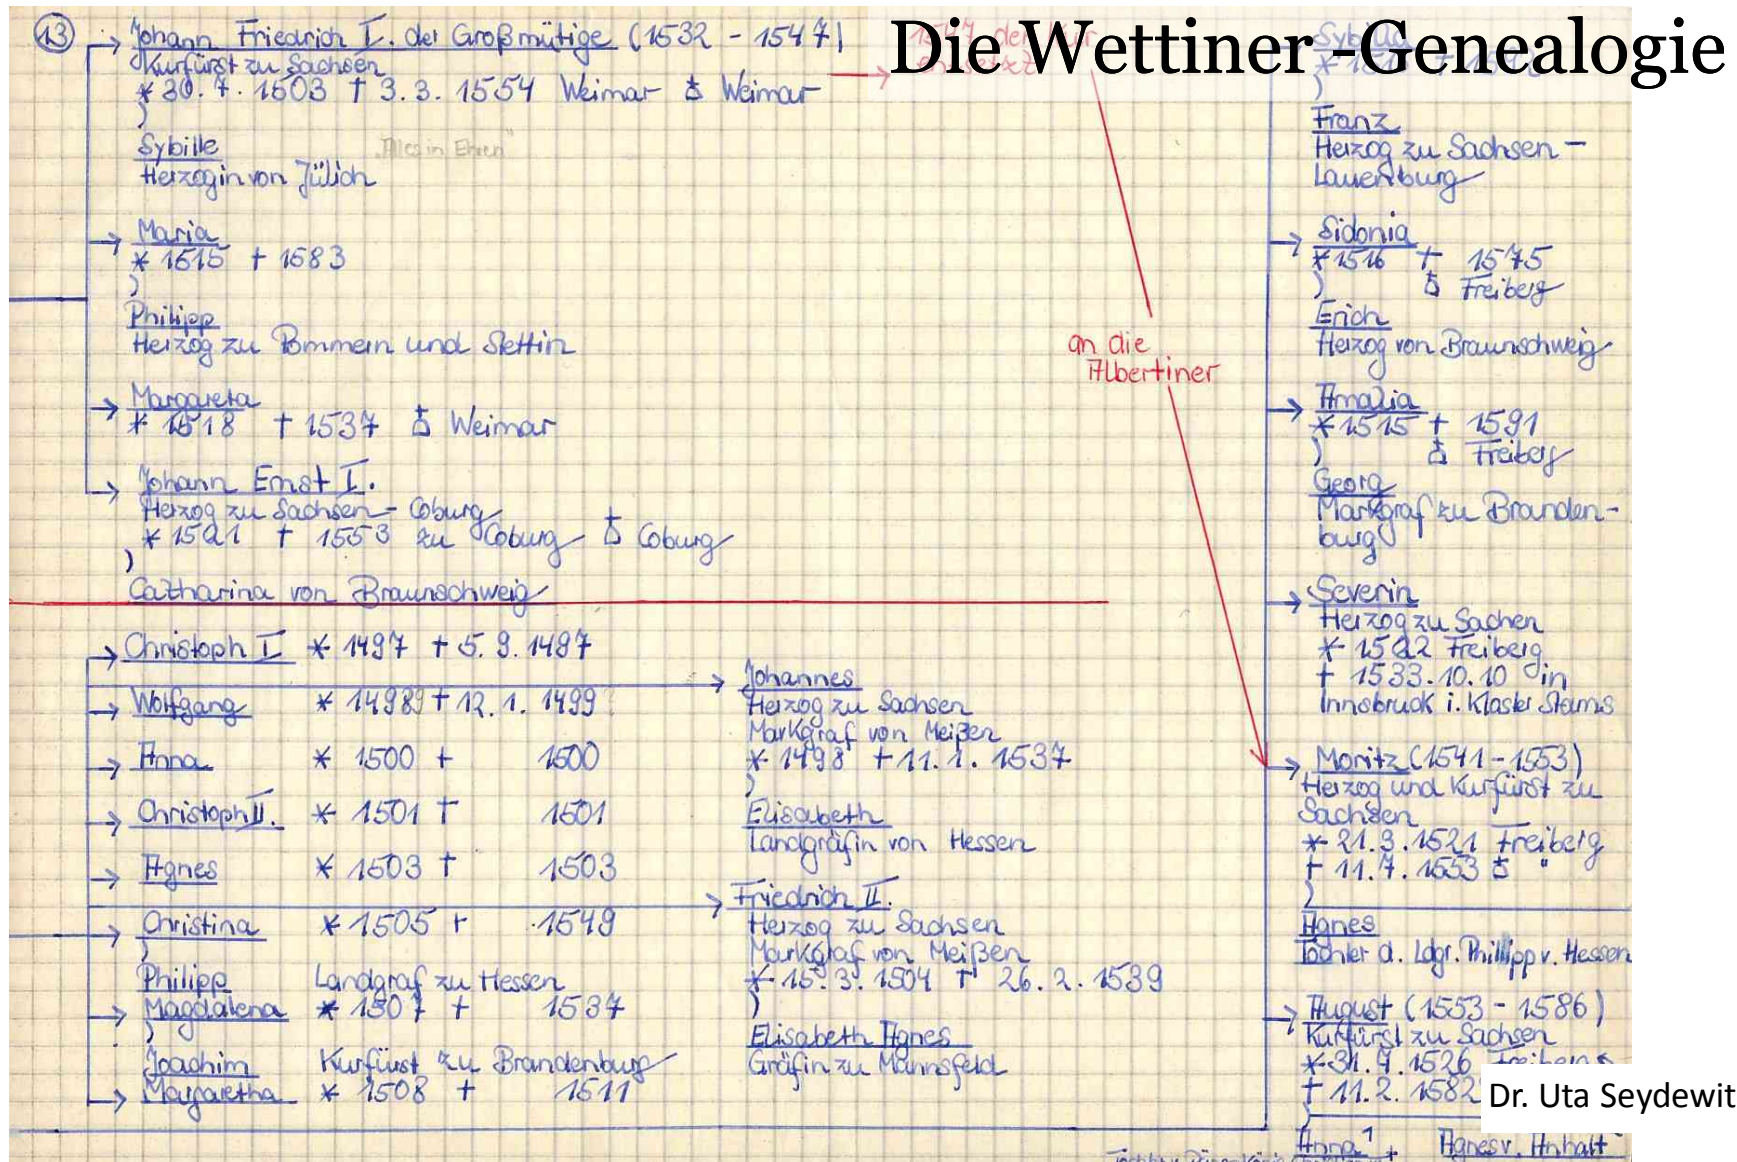 Die Wettiner -Genealogie
13
Johann Friedrich I. der Großmütige (1532 - 1547)
Kurfürst zu Sachsen
* 30. 7. 1503 † 3. 3. 1554 Weimar Weimar
)
Sybille
Herzogin von Jülich
"Alles in Ehren"
Maria
* 1515 † 1583
)
Philipp
Herzog zu Pommern und Stettin
Margareta
* 1518 † 1537 Weimar
Johann Ernst I.
Herzog zu Sachsen - Coburg
* 1521 † 1553 zu Coburg Coburg
)
Catharina von Braunschweig
Christoph I * 1497 † 5. 9. 1497
Wolfgang * 14989 † 12. 1. 1499
Anna * 1500 † 1500
Christoph II. * 1501 † 1501
Agnes * 1503 † 1503
Christina * 1505 † 1549
)
Philipp Landgraf zu Hessen
Magdalena * 1507 † 1537
)
Joachim Kurfürst zu Brandenburg
Margaretha * 1508 † 1511
Johannes
Herzog zu Sachsen
Markgraf von Meißen
* 1498 † 11. 1. 1537
)
Elisabeth
Landgräfin von Hessen
Friedrich II.
Herzog zu Sachsen
Markgraf von Meißen
* 15. 3. 1504 † 26. 2. 1539
)
Elisabeth Agnes
Gräfin zu Mannsfeld
1547 der Kur
an die
Albertiner
)
Franz
Herzog zu Sachsen -
Lauenburg
Sidonia
* 1516 † 1575
) Freiberg
Erich
Herzog von Braunschweig
Amalia
* 1515 † 1591
) Freiberg
Georg
Markgraf zu Branden-
burg
Severin
Herzog zu Sachen
* 1522 Freiberg
† 1533.10.10 in
Innsbruck i. Kloster Stams
Moritz (1541 - 1553)
Herzog und Kurfürst zu
Sachsen
* 21. 3. 1521 Freiberg
† 11. 7. 1553 "
)
Agnes
Tochter d. Ldgr. Philipp v. Hessen
August (1553 - 1586)
Kurfürst zu Sachsen
* 31. 7. 1526 Freiberg
† 11. 2. 1582
)
Anna 1 Agnes v. Anhalt
Dr. Uta Seydewit